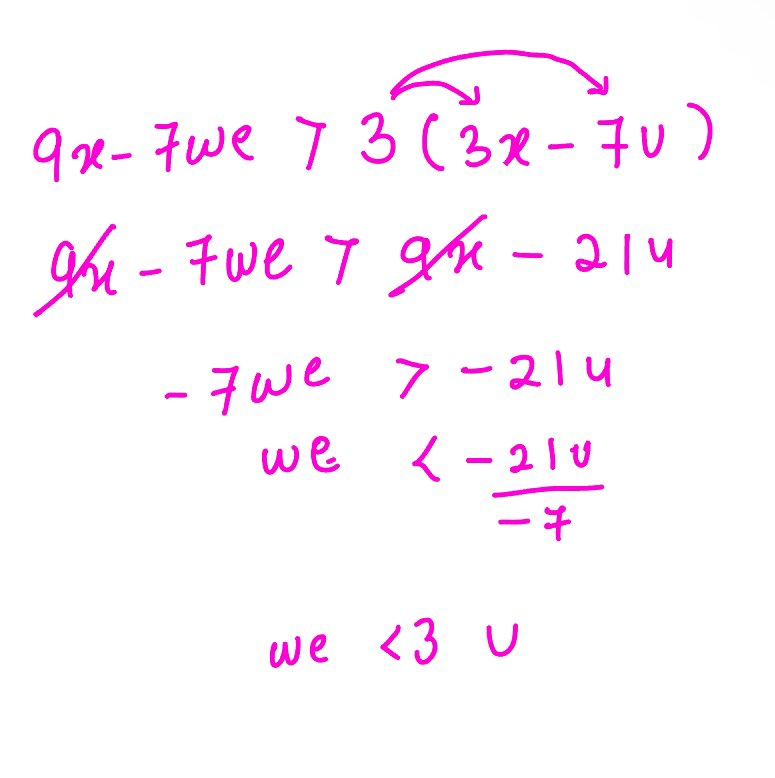 9x - 7we > 3(3x - 7u)
9x - 7we > 9x - 21u
-7we > -21u
we < -21u/-7
we <3 u